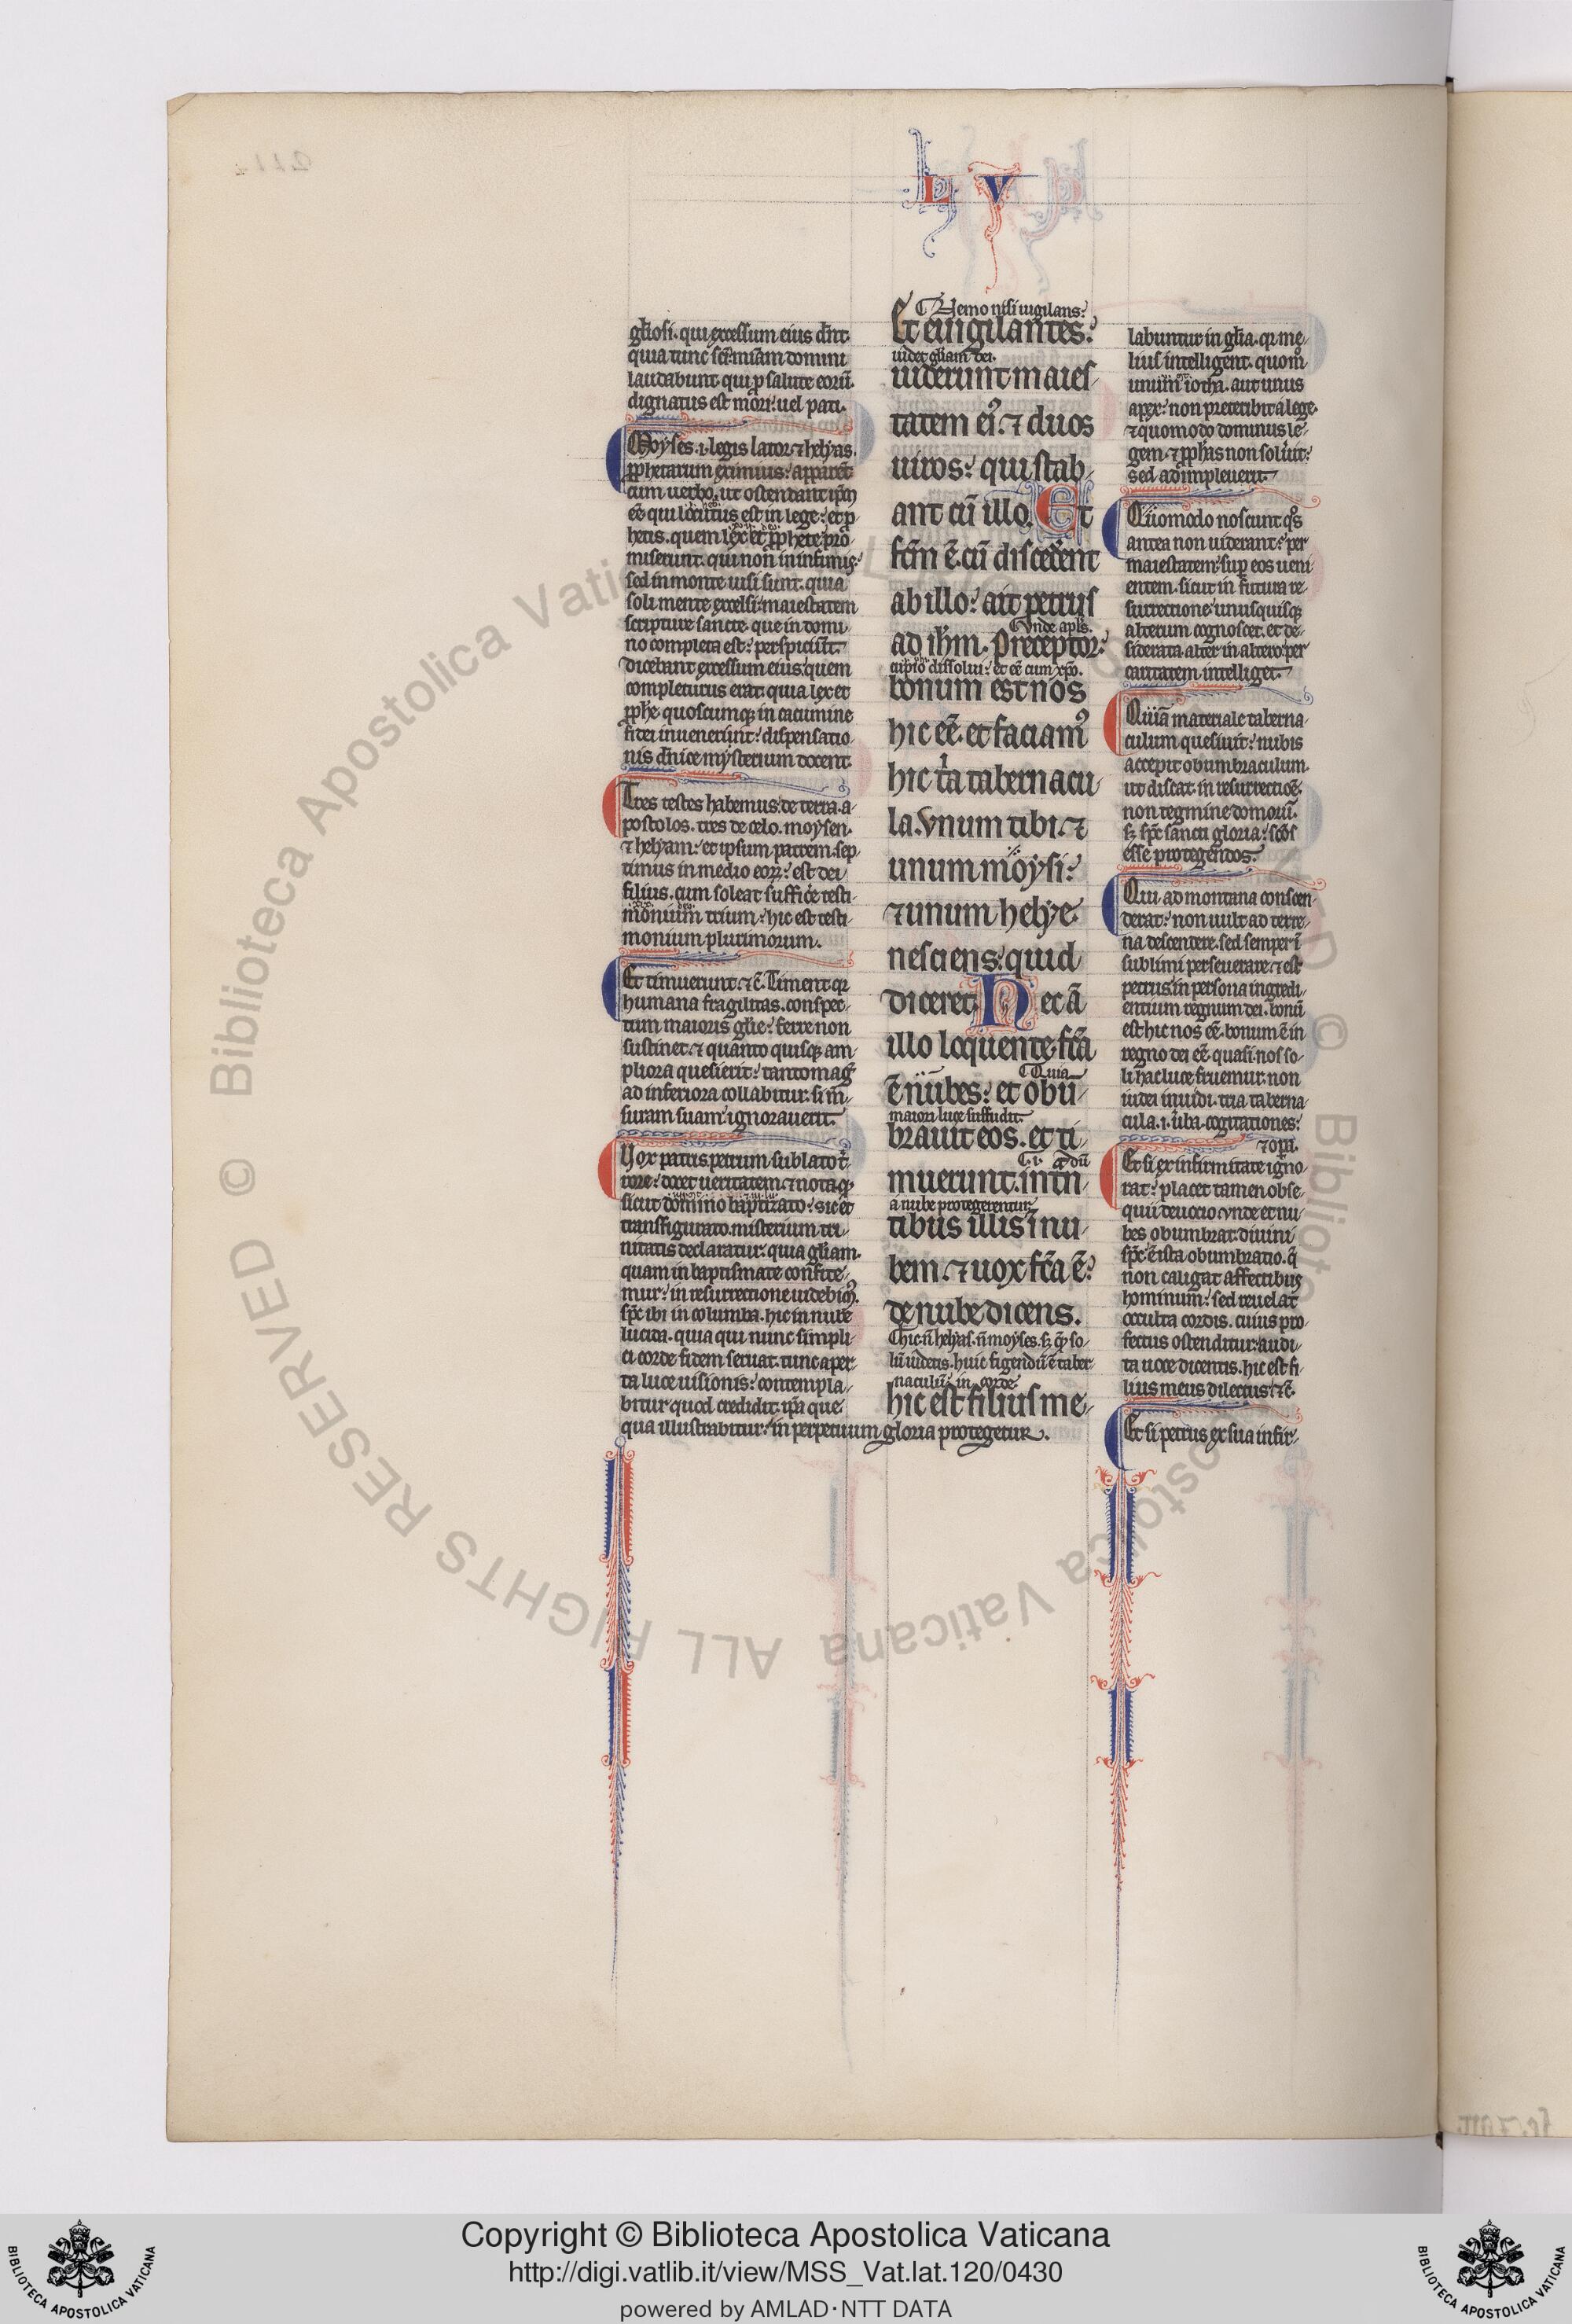 L V
gl̄iosi. qui excessum eius dn̄t.
quia tunc scī misām domini
laudabunt. qui ꝓ salute eorū.
dignatus est mori: uel pati.
Moyses .i. legis lator ⁊ helyas.
ꝓphetarum eximius: apparēt
cum uerbo. ut ostendant ip̄m
eē qui locutus est in lege: et ꝓ
hetis. quem lex et ꝓphete pro
miserunt. qui non in infimis:
sed in monte uisi sunt. quia
soli mente excelsi: maiestatem
scripture sancte. que in domi
no completa est: perspiciūt.
Dicebant excessum eius: quem
completurus erat. quia lex et
ꝓphe quoscumqꝫ in cacumine
fidei inuenerunt: dispensatio
nis dn̄ice mysterium docent.
Tres testes habemus: de terra. a
postolos. tres de celo. moysen.
⁊ helyam: et ipsum patrem. sep
timus in medio eoꝝ: est dei
filius. cum soleat sufficere testi
monium trium: hic est testi
monium plurimorum.
Et timuerunt. ⁊c̄. Timent qꝛ
humana fragilitas. conspec
tum maioris gl̄ie: ferre non
sustinet. ⁊ quanto quisqꝫ am
pliora quesierit: tanto mag̉
ad inferiora collabitur. si m̄
suram suam: ignorauerit.
Vox patris petrum sublato
tore: docet ueritatem. ⁊ nota qꝫ
sicut domino baptizato: sic et
transfigurato. misterium tri
nitatis declaratur. quia gl̄iam
quam in baptismate confite
mur: in resurrectione uidebimꝰ.
sp̄c ibi in columba. hic in nube
lucida. quia qui nunc simpli
ci corde fidem seruat. tunc aper
ta luce uisionis: contempla
bitur quod credidit. ip̄a que
qua illustrabitur: in perpetuum gloria protegetur.
Nemo nisi uigilans:
Et euigilantes:
uidet gl̄iam dei.
uiderunt maies
tatem eiꝰ. ⁊ duos
uiros: qui stab
ant cū illo. Et
fcm̄ ē. cū discederent
ab illo: ait petrus
Vnde apl̄s.
ad ih̄m. Preceptor:
cupio dissolui: et eē cum xp̄o.
bonum est nos
hic eē. et faciamꝰ
hic tͥa tabernacu
la. Vnum tibi. ⁊
unum moysi:
⁊ unum helye.
nesciens: quid
diceret. Hec āt
illo loquente: fcā
Quia
ē nubes: et obū
maiori luce suffudit.
brauit eos. et ti
.i. qꝫ dū
muerunt. intn̄
a nube protegerentur.
tibus illis ī nu
bem. ⁊ uox fcā ē:
de nube dicens.
Hic n̄ helyas. n̄ moyses. sꝫ qꝫ so
lū uidetis. huic figendū ē taber
naculū in corde.
hic est filius me
labuntur in gl̄ia. qꝛ me
lius intelligent. quom̊
unum iotha. aut unus
apex: non preteribit a lege.
⁊ quomodo dominus le
gem. ⁊ ꝓphas non soluit:
sed adimpleuerit.
Quomodo noscunt qͦs
antea non uiderant: per
maiestatem: suꝑ eos ueni
entem. sicut in futura re
surrectione: unusquisqꝫ
alterum cognoscet. et de
siderata alter in altero: per
caritatem intelliget.
Quia materiale taberna
culum quesiuit: nubis
accepit obumbraculum.
ut discat. in resurrectiōe.
non tegmine domorū.
sꝫ sp̄c sancti gloria: scōs
esse protegendos.
Qui ad montana conscen
derat: non uult ad terre
na descendere. sed semper ī
sublimi perseuerare. ⁊ est
petrus in persona ingredi
entium regnum dei. bonū
est hic nos eē. bonum ē in
regno dei eē. quasi nos so
li hac luce fruemur. non
iudei inuidi. tria taberna
cula .i. uba. cogitationes:
⁊ opa.
Et si ex infirmitate igno
rat: placet tamen obse
quii deuotio. vnde et nu
bes obumbrat. diuini
sp̄c ē ista obumbratio. q̄
non caligat affectibus
hominum: sed reuelat
occulta cordis. cuius pro
fectus ostenditur: audi
ta uoce dicentis. hic est fi
lius meus dilectus: ⁊c̄.
Et si petrus ex sua infir
© Biblioteca Apostolica Vaticana ALL RIGHTS RESERVED
Copyright © Biblioteca Apostolica Vaticana
http://digi.vatlib.it/view/MSS_Vat.lat.120/0430
powered by AMLAD·NTT DATA
BIBLIOTECA APOSTOLICA VATICANA
BIBLIOTECA APOSTOLICA VATICANA